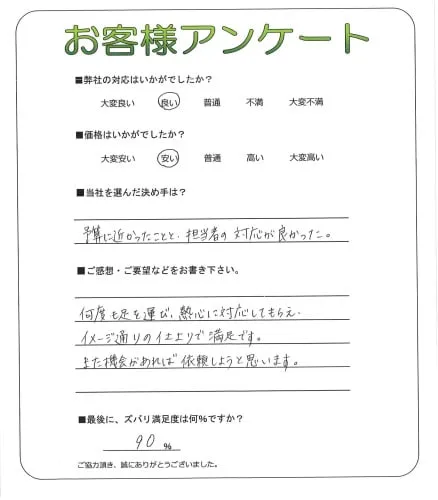 お客様アンケート
■弊社の対応はいかがでしたか？
大変良い 良い 普通 不満 大変不満
■価格はいかがでしたか？
大変安い 安い 普通 高い 大変高い
■当社を選んだ決め手は？
予算に近かったことと、担当者の対応が良かった。
■ご感想・ご要望などをお書き下さい。
何度も足を運び、熱心に対応してもらえ、
イメージ通りの仕上りで満足です。
また機会があれば依頼しようと思います。
■最後に、ズバリ満足度は何％ですか？
90 ％
ご協力頂き、誠にありがとうございました。